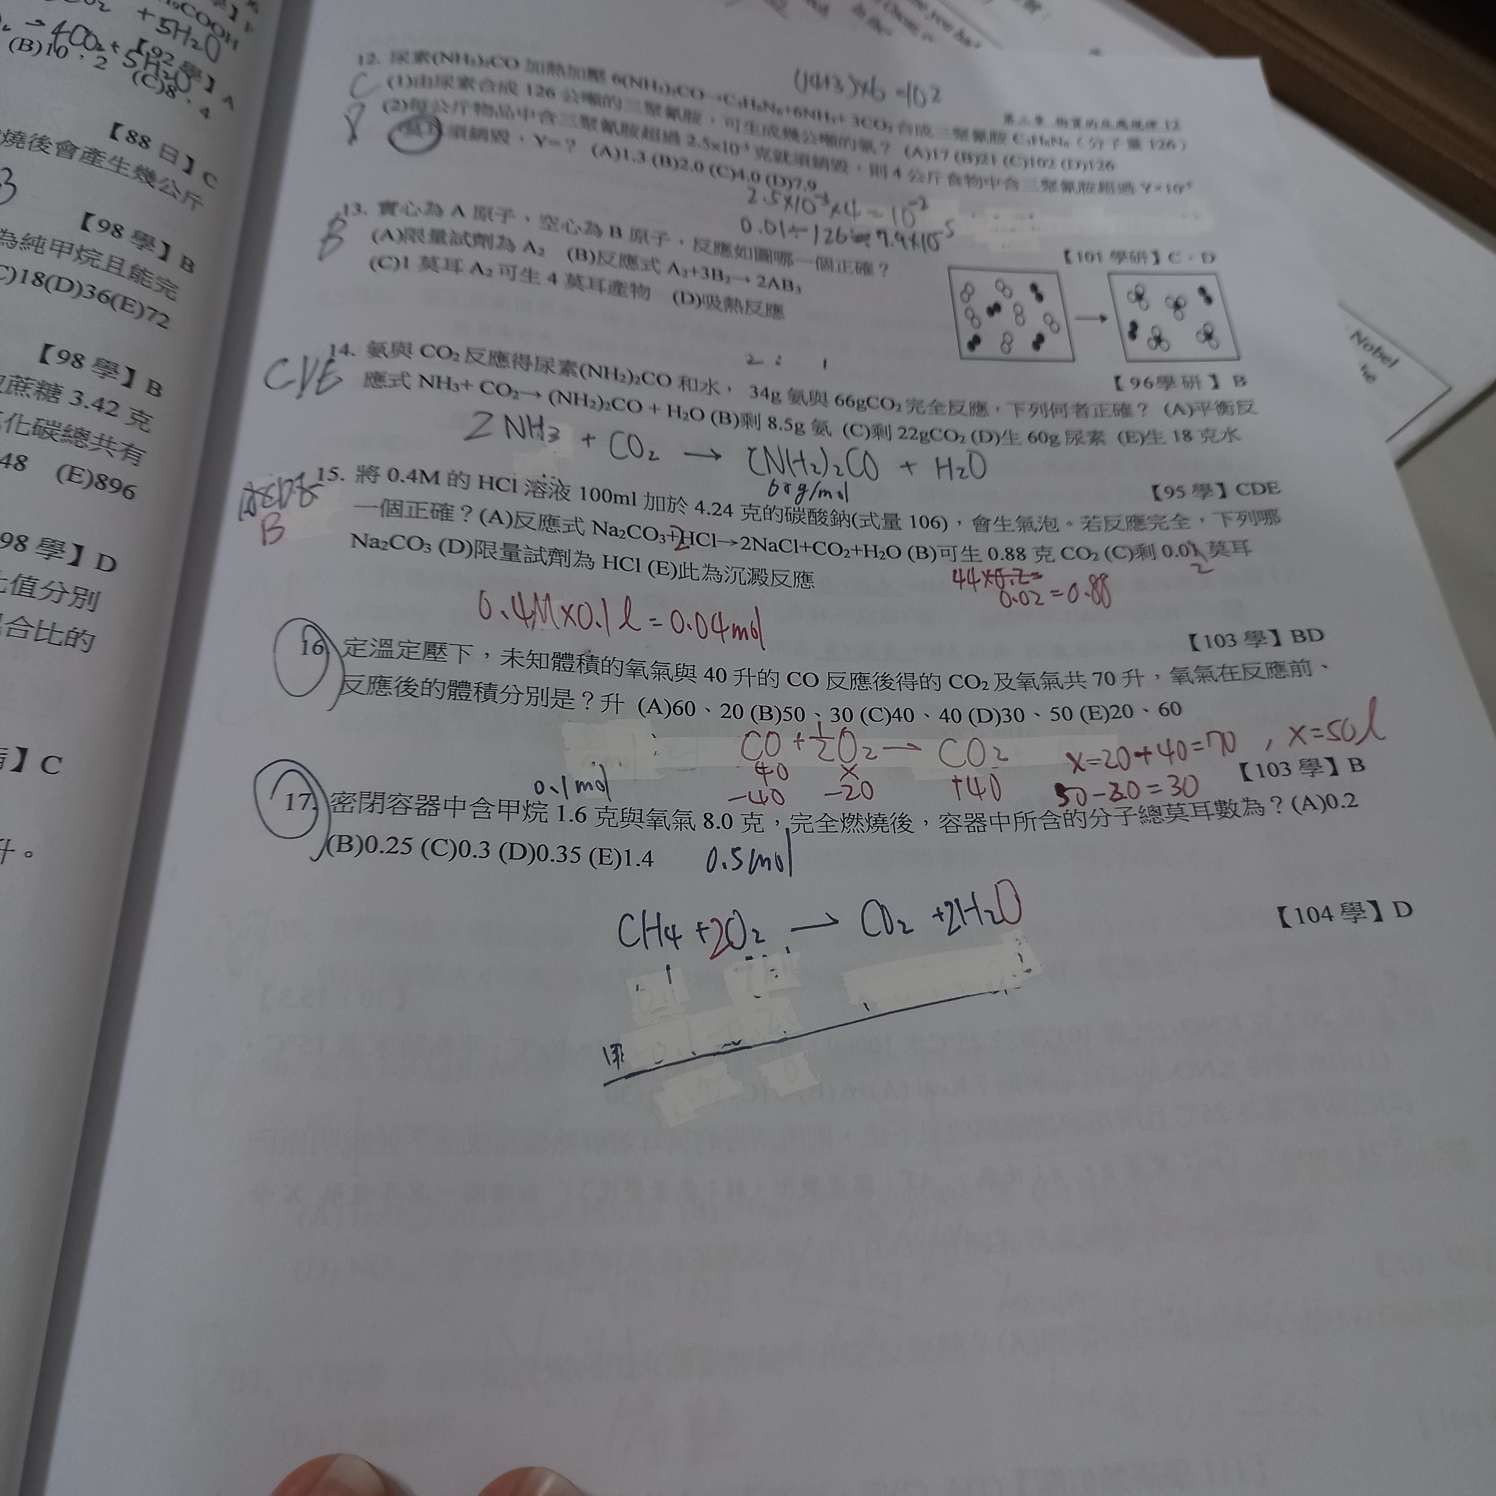 COOH
+5H₂O
→4CO₂+5H₂O
【92 學】A
(B)10,2 (C)8,4
【88 日】C
燒後會產生幾公斤
【98 學】B
為純甲烷且能完
C)18(D)36(E)72
【98 學】B
蔗糖 3.42 克
化碳總共有
48 (E)896
98 學】D
比值分別
合比的
】C
升。
Nobel
第二章 物質的反應規律 12
12. 尿素(NH₂)₂CO 加熱加壓 6(NH₂)₂CO→C₃H₆N₆+6NH₃+3CO₂ 合成三聚氰胺 C₃H₆N₆（分子量 126）
(14+3)×6=102
C
(1)由尿素合成 126 公噸的三聚氰胺，可生成幾公噸的氨？ (A)17 (B)21 (C)102 (D)126
(2)每公斤物品中含三聚氰胺超過 2.5x10⁻³ 克就須銷毀，則 4 公斤食物中含三聚氰胺超過 Y×10⁻⁵
須銷毀，Y=？ (A)1.3 (B)2.0 (C)4.0 (D)7.9
2.5×10⁻³×4=10⁻²
0.01÷126≒7.9×10⁻⁵
【101 學研】C、D
13. 實心為 A 原子，空心為 B 原子，反應如圖哪一個正確？
B
(A)限量試劑為 A₂ (B)反應式 A₂+3B₂→2AB₃
(C)1 莫耳 A₂ 可生 4 莫耳產物 (D)吸熱反應
【96學研】B
2 : 1
14. 氨與 CO₂ 反應得尿素(NH₂)₂CO 和水， 34g 氨與 66gCO₂ 完全反應，下列何者正確？ (A)平衡反
CDE
應式 NH₃+ CO₂→ (NH₂)₂CO + H₂O (B)剩 8.5g 氨 (C)剩 22gCO₂ (D)生 60g 尿素 (E)生 18 克水
2NH₃ + CO₂ → (NH₂)₂CO + H₂O
60g/mol
【95 學】CDE
15. 將 0.4M 的 HCl 溶液 100ml 加於 4.24 克的碳酸鈉(式量 106)，會生氣泡。若反應完全，下列哪
B
一個正確？(A)反應式 Na₂CO₃+2HCl→2NaCl+CO₂+H₂O (B)可生 0.88 克 CO₂ (C)剩 0.01 莫耳
2
Na₂CO₃ (D)限量試劑為 HCl (E)此為沉澱反應
44×0.2=
0.02=0.88
0.4M×0.1l=0.04mol
【103 學】BD
16. 定溫定壓下，未知體積的氧氣與 40 升的 CO 反應後得的 CO₂ 及氧氣共 70 升，氧氣在反應前、
反應後的體積分別是？升 (A)60、20 (B)50、30 (C)40、40 (D)30、50 (E)20、60
CO+½O₂→CO₂
40 x
-40 -20 +40
x=20+40=70 , x=50l
50-20=30
【103 學】B
0.1mol
17. 密閉容器中含甲烷 1.6 克與氧氣 8.0 克，完全燃燒後，容器中所含的分子總莫耳數為？(A)0.2
(B)0.25 (C)0.3 (D)0.35 (E)1.4
0.5mol
CH₄+2O₂→CO₂+2H₂O
【104 學】D